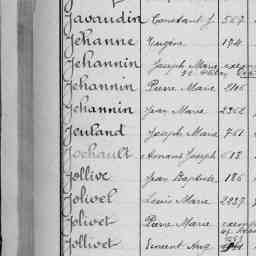 Javaudin Constant J. 567
Jéhanne Eugène 194
Jéhannin Joseph Marie exem
Jéhannin Pierre Marie 2116
Jéhannin Jean Marie 2362
Jeuland Joseph Marie 761
Jochault Armand Joseph 618
Jollive Jean Baptiste 186
Jolivel Louis Marie 2037
Jolivet Pierre Marie exem
Jollivet Vincent Aug.